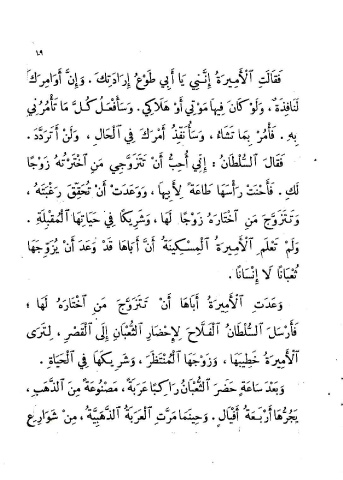 ١٩
فَقَالَتِ ٱلْأَمِيرَةُ إِنَّنِي يَا أَبِي طَوْعُ إِرَادَتِكَ . وَإِنَّ أَوَامِرَكَ
لَنَافِذَةٌ ، وَلَوْ كَانَ فِيهَا مَوْتِي أَوْ هَلَاكِي . وَسَأَفْعَلُ كُلَّ مَا تَأْمُرُنِي
بِهِ . فَأْمُرْ بِمَا تَشَاءُ ، وَسَأُنَفِّذُ أَمْرَكَ فِي ٱلْحَالِ ، وَلَنْ أَتَرَدَّدَ .
فَقَالَ ٱلسُّلْطَانُ : إِنِّي أُحِبُّ أَنْ تَتَزَوَّجِي مَنِ ٱخْتَرْتُهُ زَوْجًا
لَكِ . فَأَحْنَتْ رَأْسَهَا طَاعَةً لِأَبِيهَا ، وَوَعَدَتْ أَنْ تُحَقِّقَ رَغْبَتَهُ ،
وَتَتَزَوَّجَ مَنِ ٱخْتَارَهُ زَوْجًا لَهَا ، وَشَرِيكًا فِي حَيَاتِهَا ٱلْمُقْبِلَةِ .
وَلَمْ تَعْلَمِ ٱلْأَمِيرَةُ ٱلْمِسْكِينَةُ أَنَّ أَبَاهَا قَدْ وَعَدَ أَنْ يُزَوِّجَهَا
ثُعْبَانًا لَا إِنْسَانًا .
وَعَدَتِ ٱلْأَمِيرَةُ أَبَاهَا أَنْ تَتَزَوَّجَ مَنِ ٱخْتَارَهُ لَهَا ؛
فَأَرْسَلَ ٱلسُّلْطَانُ ٱلْفَلَّاحَ لِإِحْضَارِ ٱلثُّعْبَانِ إِلَى ٱلْقَصْرِ ، لِتَرَى
ٱلْأَمِيرَةُ خَطِيبَهَا ، وَزَوْجَهَا ٱلْمُنْتَظَرَ ، وَشَرِيكَهَا فِي ٱلْحَيَاةِ .
وَبَعْدَ سَاعَةٍ حَضَرَ ٱلثُّعْبَانُ رَاكِبًا عَرَبَةً ، مَصْنُوعَةً مِنَ ٱلذَّهَبِ ،
يَجُرُّهَا أَرْبَعَةُ أَفْيَالٍ . وَحِينَمَا مَرَّتِ ٱلْعَرَبَةُ ٱلذَّهَبِيَّةُ ، مِنْ شَوَارِعِ